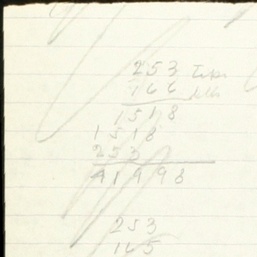 253
166
1518
1518
253
41998
253
165